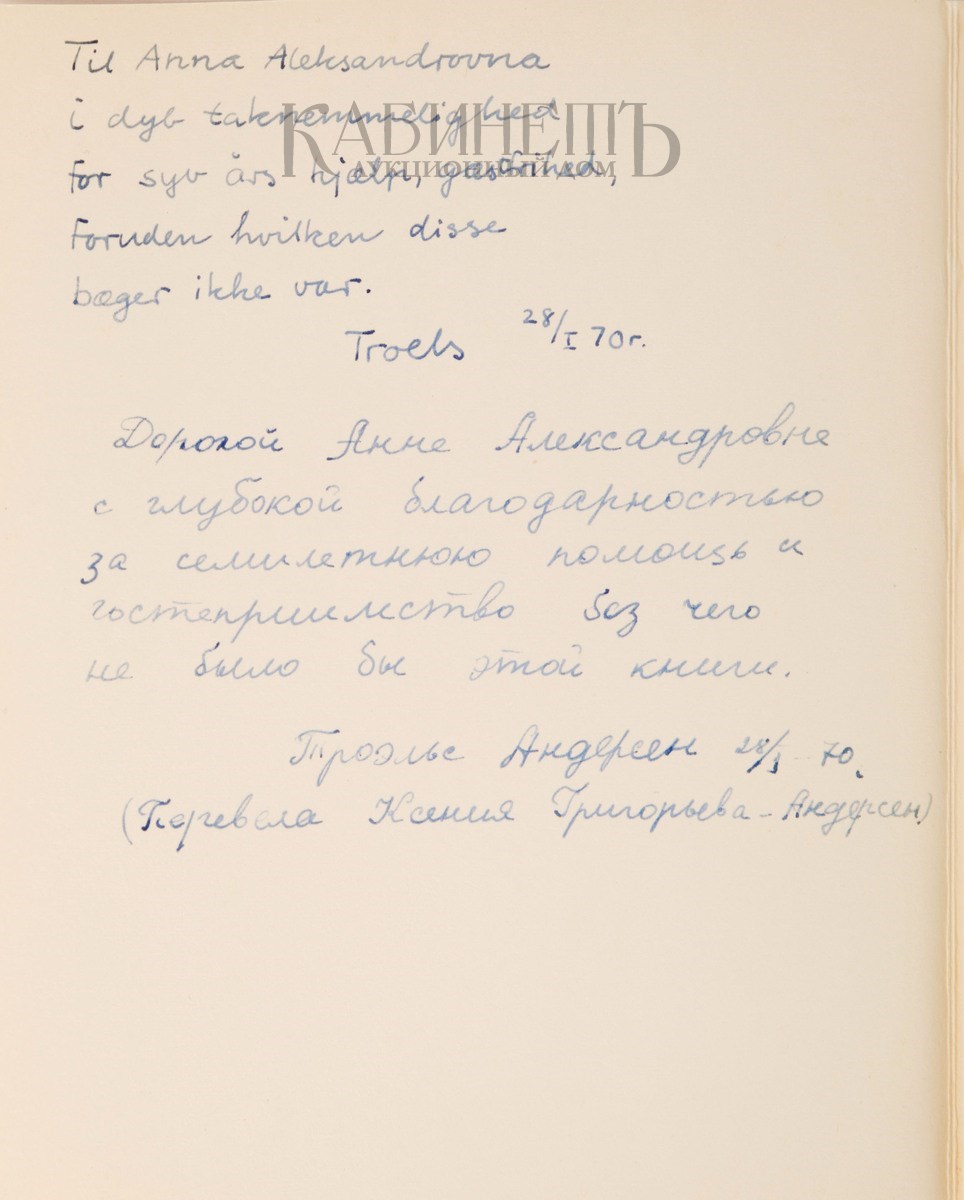 Til Anna Aleksandrovna
i dyb taknemmelighed
for syv års hjælp, gæstfrihed,
foruden hvilken disse
bøger ikke var.
Troels 28/I 70г.
Дорогой Анне Александровне
с глубокой благодарностью
за семилетнюю помощь и
гостеприимство без чего
не было бы этой книги.
Троэльс Андерсен 28/I - 70.
(Перевела Ксения Григорьева-Андерсен)
КАБИНЕТЪ
АУКЦИОННЫЙ ДОМ